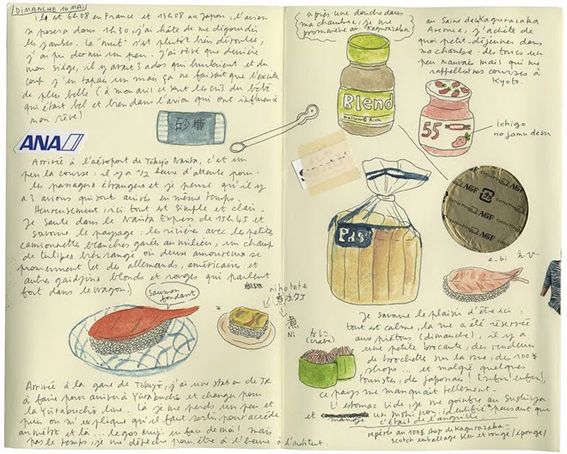 DIMANCHE 16 MAI
il est 6h08 en France et 13h08 au Japon, l'avion
se posera dans 1h30, j'ai hâte de me dégourdir
les jambes. la "nuit" s'est plutôt bien déroulée,
j'ai pu dormir un peu. j'ai rêvé que derrière
mon siège, il y avait 3 ados qui hurlaient et du
coup j'en tapais un mais ça ne faisait que l'excite
de plus belle (à mon avis ce sont les cris du bébé
qui était bel et bien dans l'avion qui ont influencé
mon rêve)
砂糖
ANA
Arrivée à l'aéroport de Tokyo Narita, c'est un
peu la course: il y a 1/2 heure d'attente pour
les passagers étrangers et je pense qu'il y a
3 avions qui sont arrivés en même temps.
Heureusement, ici tout est simple et clair.
Je saute dans le Narita Express de 15h45 et
savoure le paysage: les rivières avec les petites
camionnettes blanches garées au milieu, un champ
de tulipes très rangé où deux amoureux se
promènent (et des allemands, américains et
autres gaidjins blonds et rouges qui parlent
fort dans le wagon)
Saumon fondant
nikotate
煮
Ni
Arrivée à la gare de Tokyo, j'ai une station de JR
à faire pour arriver à Yurakucho et changer pour
la Yurakucho line. Là je me perds un peu et
puis on m'explique qu'il faut sortir pour accéder
au métro et là... le gros busi en face de moi! mais
pas le temps, je me dépêche pour être à l'heure à l'institut.
après une douche dans
ma chambre, je me
promène à Kagurazaka
Blend
Mellow & Rich
au Seine de Kagurazaka
Avenue, j'achète de
quoi petit-déjeuner dans
ma chambre. des toucs un
peu mauvais mais qui me
rappellent nos courses à
Kyoto.
55
ichigo
no jamu desu
AGF
Pas
e.bi
えび
Je savoure le plaisir d'être ici:
tout est calme, la rue a été réservée
aux piétons (dimanche), il y a
une petite brocante, des vendeurs
de brochettes sur la rue, des 100¥
shops... et malgré quelques
touristes, de japonais! (Enfin! Enfin!)
ce pays me manquait tellement.
L'estomac vide, je me goinfre au Sushiya
et mange un sushi non-identifié puissant que
c'était de l'anguille
repérés au 100¥ shop de Kagurazaka:
scotch emballage bleu et rouge/éponge/